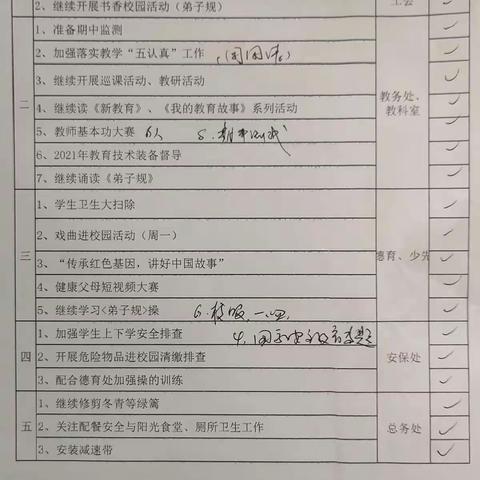 2、继续开展书香校园活动（弟子规）
工会
二
1、准备期中监测
2、加强落实教学“五认真”工作
3、继续开展巡课活动、教研活动
4、继续读《新教育》、《我的教育故事》系列活动
5、教师基本功大赛 6人
6、2021年教育技术装备督导
7、继续诵读《弟子规》
教务处、
教科室
三
1、学生卫生大扫除
2、戏曲进校园活动（周一）
3、“传承红色基因，讲好中国故事”
4、健康父母短视频大赛
5、继续学习<弟子规>操 6.校服
德育、少先
四
1、加强学生上下学安全排查
2、开展危险物品进校园清缴排查
3、配合德育处加强操的训练
安保处
五
1、继续修剪冬青等绿篱
2、关注配餐安全与阳光食堂、厕所卫生工作
3、安装减速带
总务处